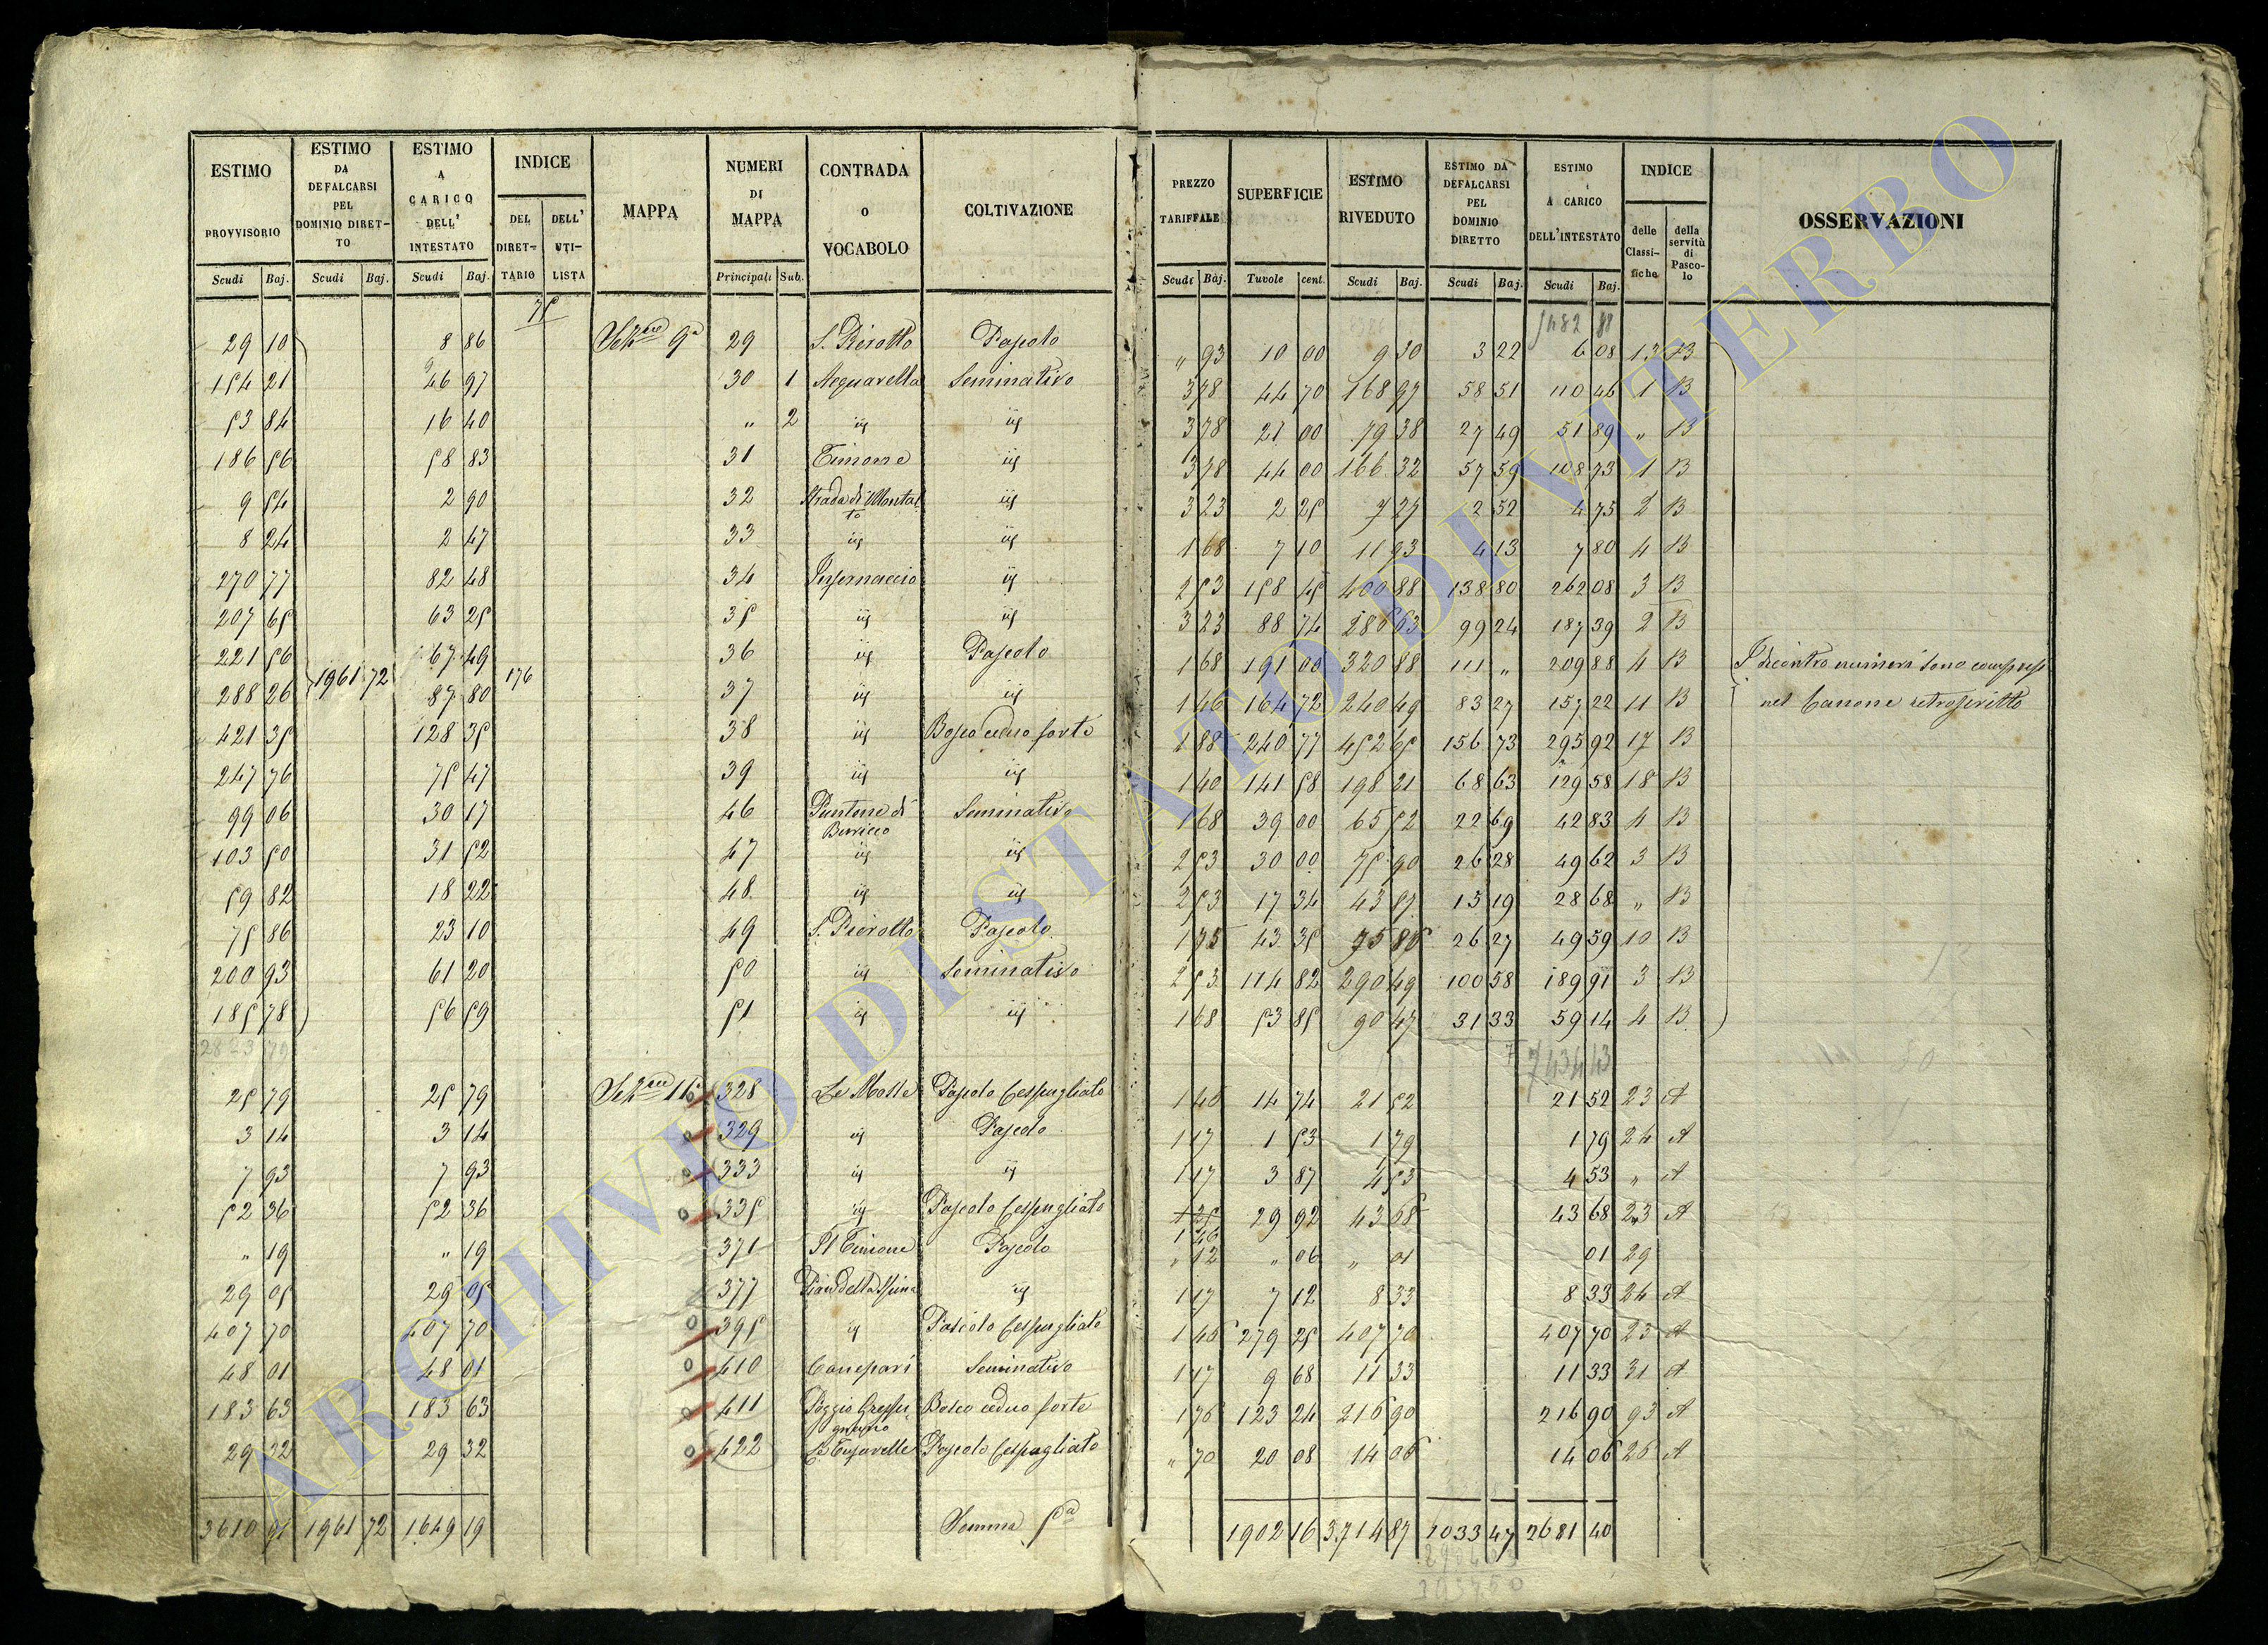 ESTIMO PROVVISORIO | ESTIMO DA DEFALCARSI PEL DOMINIO DIRET-TO | ESTIMO A CARICO DELL' INTESTATO | INDICE DEL DIRET-TARIO | DELL' UTI-LISTA | MAPPA | NUMERI DI MAPPA | CONTRADA o VOCABOLO | COLTIVAZIONE | PREZZO TARIFFALE | SUPERFICIE | ESTIMO RIVEDUTO | ESTIMO DA DEFALCARSI PEL DOMINIO DIRETTO | ESTIMO A CARICO DELL'INTESTATO | INDICE delle Classi-fiche | della servitù di Pasco-lo | OSSERVAZIONI
Scudi Baj. | Scudi Baj. | Scudi Baj. | Principali Sub. | Scudi Baj. | Tavole cent. | Scudi Baj. | Scudi Baj. | Scudi Baj.
75
29 10 | 8 86 | Sez.ne 9a | 29 | S. Pierotto | Pascolo | " 93 | 10 00 | 9 30 | 3 22 | 6 08 | 13 | B
154 21 | 46 97 | 30 1 | Acquarella | Seminativo | 3 78 | 44 70 | 168 97 | 58 51 | 110 46 | 1 | B
53 84 | 16 40 | " 2 | id | id | 3 78 | 21 00 | 79 38 | 27 49 | 51 89 | " | B
186 56 | 58 83 | 31 | Timone | id | 3 78 | 44 00 | 166 32 | 57 59 | 108 73 | 1 | B
9 54 | 2 90 | 32 | Strada di Montalto | id | 3 23 | 2 25 | 7 27 | 2 52 | 4 75 | 2 | B
8 24 | 2 47 | 33 | id | id | 1 68 | 7 10 | 11 93 | 4 13 | 7 80 | 4 | B
270 77 | 82 48 | 34 | Infernaccio | id | 2 53 | 158 45 | 400 88 | 138 80 | 262 08 | 3 | B
207 65 | 63 25 | 35 | id | id | 3 23 | 88 74 | 286 63 | 99 24 | 187 39 | 2 | B
221 56 | 67 49 | 36 | id | Pascolo | 1 68 | 191 00 | 320 88 | 111 " | 209 88 | 4 | B | I dicontro numeri sono compresi
1961 72 | 176
288 26 | 87 80 | 37 | id | id | 1 46 | 164 72 | 240 49 | 83 27 | 157 22 | 11 | B | nel Canone retroscritto
421 35 | 128 35 | 38 | id | Bosco ceduo forte | 1 88 | 240 77 | 452 65 | 156 73 | 295 92 | 17 | B
247 76 | 75 47 | 39 | id | id | 1 40 | 141 58 | 198 21 | 68 63 | 129 58 | 18 | B
99 06 | 30 17 | 46 | Puntone di | Seminativo | 1 68 | 39 00 | 65 52 | 22 69 | 42 83 | 4 | B
103 50 | 31 52 | 47 | id | id | 2 53 | 30 00 | 75 90 | 26 28 | 49 62 | 3 | B
59 82 | 18 22 | 48 | id | id | 2 53 | 17 34 | 43 87 | 15 19 | 28 68 | " | B
75 86 | 23 10 | 49 | S. Pierotto | Pascolo | 1 75 | 43 35 | 75 86 | 26 27 | 49 59 | 10 | B
200 93 | 61 20 | 50 | id | Seminativo | 2 53 | 114 82 | 290 49 | 100 58 | 189 91 | 3 | B
185 78 | 56 59 | 51 | id | id | 1 68 | 53 85 | 90 47 | 31 33 | 59 14 | 4 | B
25 79 | 25 79 | Sez.ne 11 | 328 | Le Mosse | Pascolo Cespugliato | 1 46 | 14 74 | 21 52 | 21 52 | 23 | A
3 14 | 3 14 | 329 | id | Pascolo | 1 17 | 1 53 | 1 79 | 1 79 | 24 | A
7 93 | 7 93 | 333 | id | id | 1 17 | 3 87 | 4 53 | 4 53 | " | A
52 36 | 52 36 | 335 | id | Pascolo Cespugliato | 1 46 | 29 92 | 43 68 | 43 68 | 23 | A
" 19 | " 19 | 371 | Timone | Pascolo | " 12 | " 06 | " 01 | 01 | 29
29 05 | 29 05 | 377 | Pian della Spina | id | 1 17 | 7 12 | 8 33 | 8 33 | 24 | A
407 70 | 407 70 | 395 | id | Pascolo Cespugliato | 1 46 | 279 25 | 407 70 | 407 70 | 23 | A
48 01 | 48 01 | 410 | Canepari | Seminativo | 1 17 | 9 68 | 11 33 | 11 33 | 31 | A
183 63 | 183 63 | 411 | Poggio | Bosco ceduo forte | 1 76 | 123 24 | 216 90 | 216 90 | 93 | A
29 32 | 29 32 | 422 | Pascolo Cespugliato | " 70 | 20 08 | 14 06 | 14 06 | 25 | A
3610 91 | 1961 72 | 1649 19 | Somma 5a | 1902 16 | 3714 87 | 1033 47 | 2681 40
ARCHIVIO DI STATO DI VITERBO